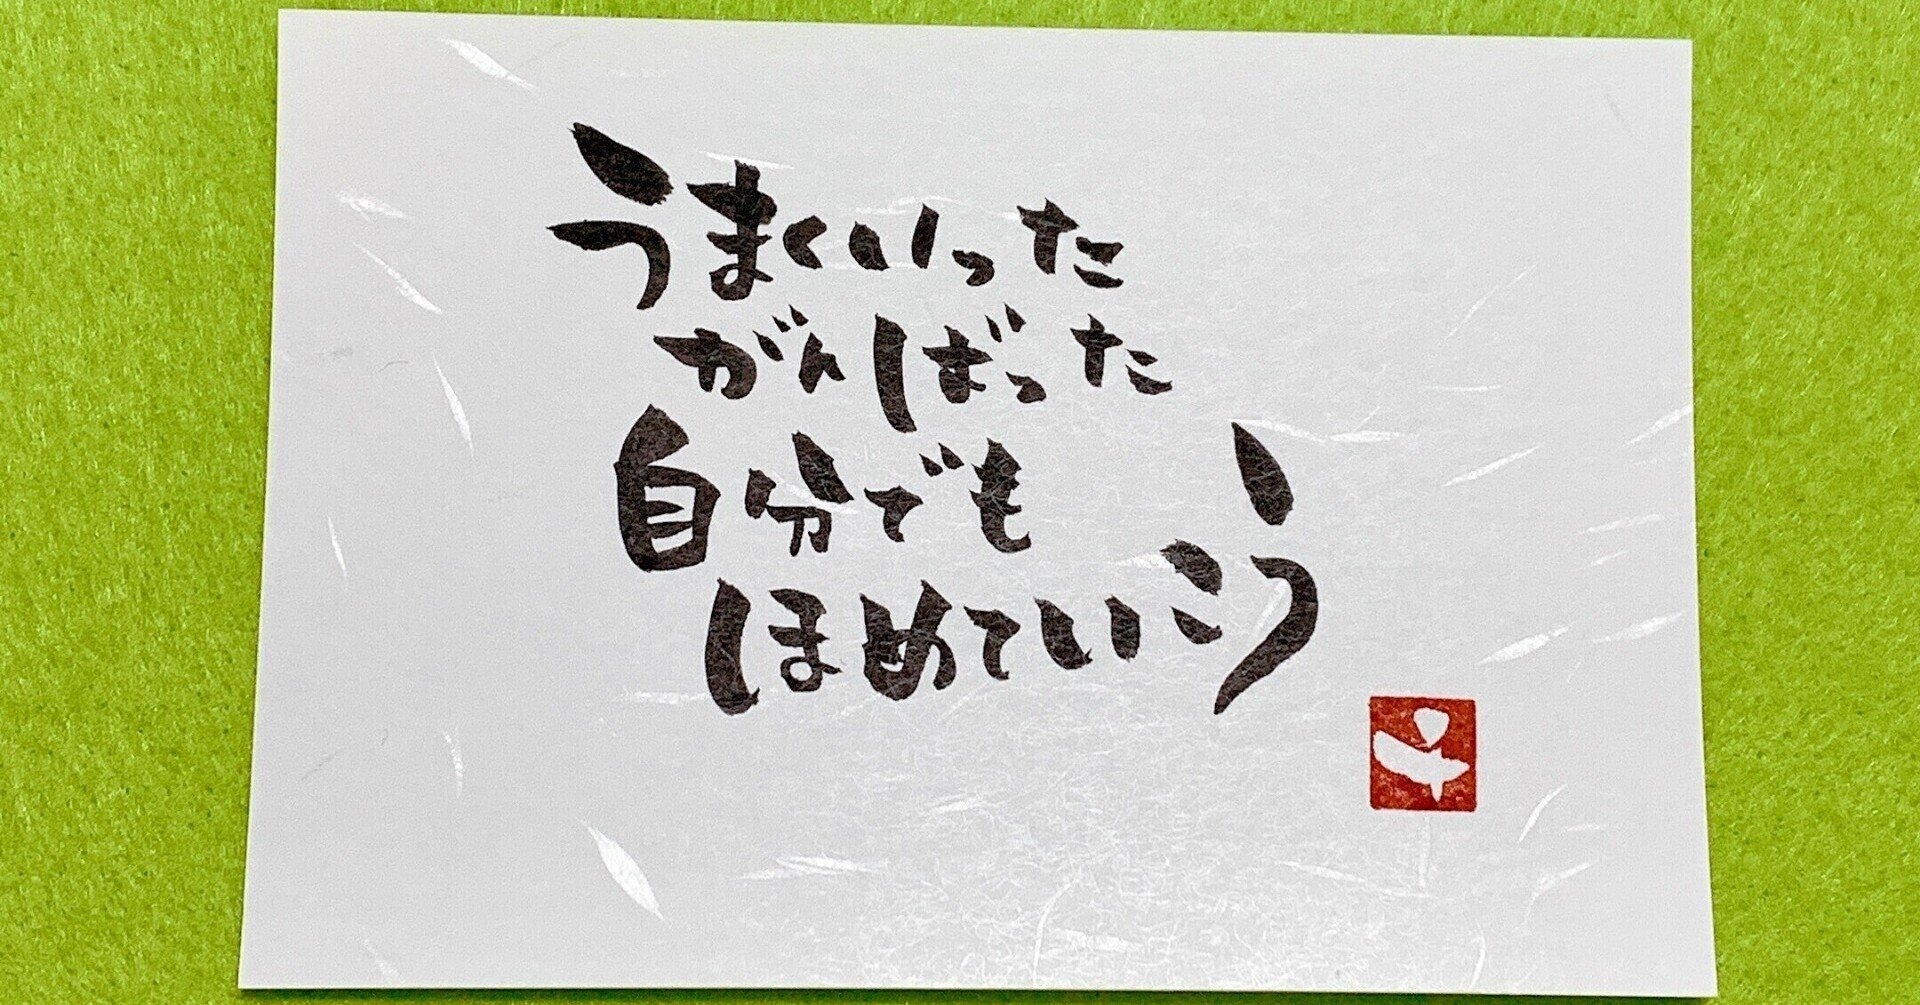 うまくいった
がんばった
自分でも
ほめていこう